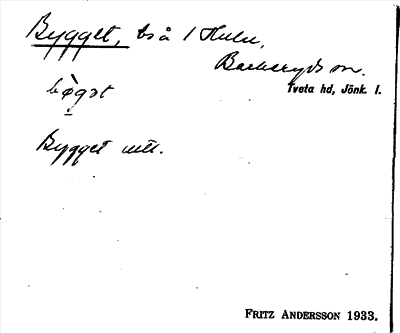 Bygget, ts å 1 Hulu,
Barkeryds sn.
Tveta hd, Jönk. l.
bøgət
Bygget utt.
FRITZ ANDERSSON 1933.